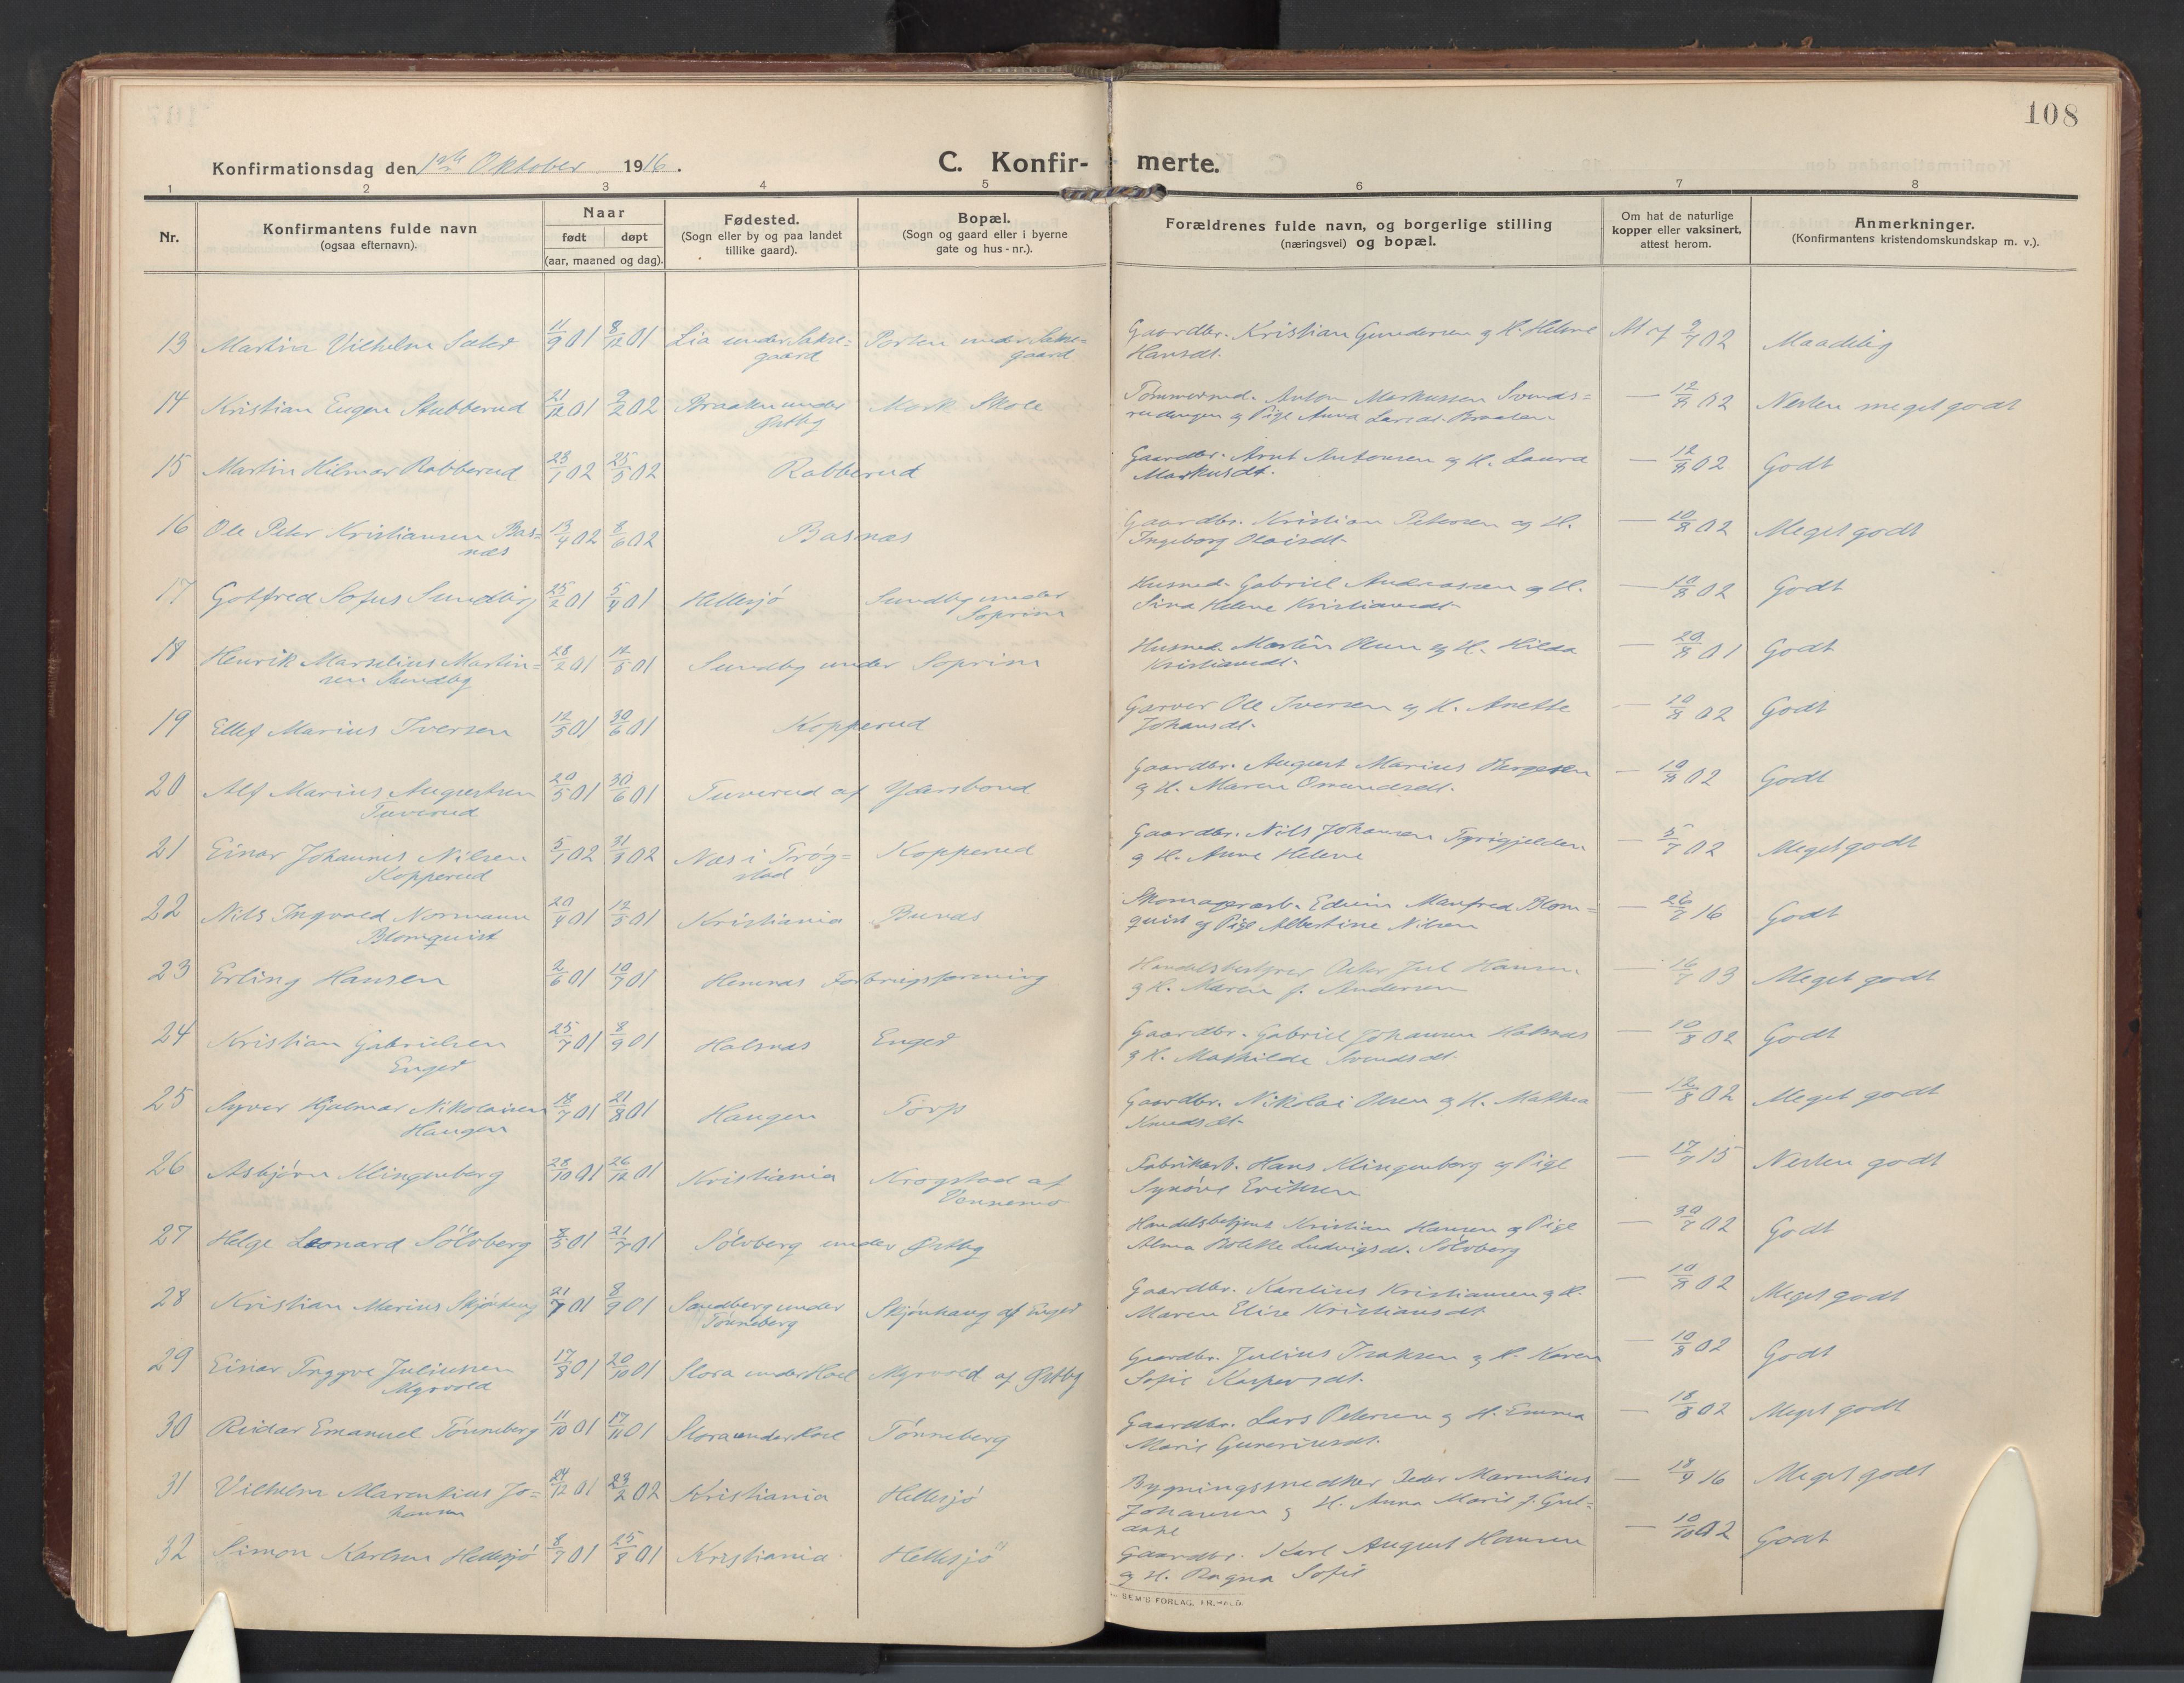 108
Konfirmationsdag den 1ste Oktober 1916.
C. Konfir- merte.
1 2 3 4 5 6 7 8
Nr.
Konfirmantens fulde navn
(ogsaa efternavn).
Naar
født døpt
(aar, maaned og dag).
Fødested.
(Sogn eller by og paa landet
tillike gaard).
Bopæl.
(Sogn og gaard eller i byerne
gate og hus-nr.).
Forældrenes fulde navn, og borgerlige stilling
(næringsvei) og bopæl.
Om hat de naturlige
kopper eller vaksinert,
attest herom.
Anmerkninger.
(Konfirmantens kristendomskundskap m. v.).
13 Martin Vilhelm 11/9 01 8/12 01 Lia under Sakse= Porten under Sakse= Gaardbr. Kristian Gundersen og H. Helene 9/7 02 Maadelig
gaard gaard Hansdt.
14 Kristian Eugen Stubberud 21/12 01 9/2 02 Braaten under Mork Skole Tømmermd. Anton Markussen Svends= — 12/8 02 Nesten meget godt
Østby rudengen og Pige Anna Larsdt. Braaten
15 Martin Hilmar Rabberud 23/1 02 25/5 02 Rabberud Gaardbr. Arnt Antonsen og H. Laura — 12/8 02 Godt
Markusdt.
16 Ole Peter Kristiansen Bas= 13/4 02 8/6 02 Basnæs Gaardbr. Kristian Petersen og H. — 10/8 02 Meget godt
næs Ingeborg Olaisdt.
17 Gotfred Sofus Sundby 25/2 01 5/4 01 Hellesjö Sundby under Husmd. Gabriel Andreassen og H. — 10/8 02 Godt
Soprim Sina Helene Kristiansdt.
18 Henrik Marselius Martin= 28/2 01 12/5 01 Sundby under Soprim Husmd. Martin Olsen og H. Hilda — 20/8 01 Godt
sen Sundby Kristiansdt.
19 Ellef Marius Iversen 12/5 01 30/6 01 Kopperud Garver Ole Iversen og H. Anette — 10/8 02 Godt
Johansdt.
20 Alf Marius Augustsen 20/5 01 30/6 01 Tuverud af Ydersbond Gaardbr. August Marius Bergesen — 10/8 02 Godt
Tuverud og H. Maren Omundsdt.
21 Einar Johannes Nilsen 5/1 02 31/3 02 Næs i Trøg= Kopperud Gaardbr. Nils Johansen Tyrigjelden — 5/7 02 Meget godt
Kopperud stad og H. Anne Helene
22 Nils Ingvald Normann 20/4 01 12/5 01 Kristiania Bunæs Skomagerarb. Edvin Manfred Blom= — 26/7 16 Godt
Blomquist quist og Pige Albertine Nilsen
23 Erling Hansen 2/6 01 10/7 01 Hemnæs Forbrugsforening Handelsbestyrer Hansen — 16/7 03 Meget godt
og H. Maren f. Andersen
24 Kristian Gabrielsen 25/7 01 8/9 01 Halsnæs Enger Gaardbr. Gabriel Johansen Halsnæs — 10/8 02 Godt
Enger og H. Mathilde Svendsdt.
25 Syver Hjalmar Nikolaisen 18/7 01 21/8 01 Haugen Torp Gaardbr. Nikolai Olsen og H. Mathea — 12/8 02 Meget godt
Haugen Knudsdt.
26 Asbjörn Klingenberg 28/10 01 26/12 01 Kristiania Krogstad af Fabrikarb. Hans Klingenberg og Pige — 17/7 15 Nesten godt
Vennemo Synöve Eriksen
27 Helge Leonard Sölvberg 8/5 01 21/7 01 Sölvberg under Østby Handelsbetjent Kristian Hansen og Pige — 30/7 02 Godt
Alma Bolette Ludvigsdt. Sölvberg
28 Kristian Marius Skjönhaug 21/7 01 8/9 01 Sandberg under Skjönhaug af Enger Gaardbr. Karelius Kristiansen og H. — 10/8 02 Meget godt
Tönneberg Maren Elise Kristiansdt.
29 Einar Tryggve Juliussen 17/8 01 20/10 01 Slora under Hoel Myrvold af Østby Gaardbr. Julius Isaksen og H. Karen — 10/8 02 Godt
Myrvold Sofie Kaspersdt.
30 Reidar Emanuel Tönneberg 11/10 01 17/11 01 Slora under Hoel Tönneberg Gaardbr. Lars Petersen og H. Emma — 18/8 02 Meget godt
Marie Gunerinsdt.
31 Vilhelm Marentius Jo= 24/12 01 23/2 02 Kristiania Hellesjö Bygningssnedker Peder Marentius — 18/9 16 Meget godt
hansen Johansen og H. Anna Marie f. Gul=
32 Simon Karlsen Hellesjö 8/7 01 25/8 01 Kristiania Hellesjö Gaardbr. Karl August Hansen — 10/10 02 Godt
og H. Ragna Sofie
SEM'S FORLAG, FR.HALD.